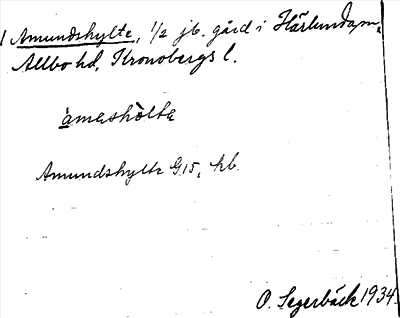 1 Amundshylte, 1/2 jb. gård i Härlunda sn,
Allbo hd, Kronobergs l.
àmashòlta
Amundshylte G15, kb.
O. Segerbäck 1934.